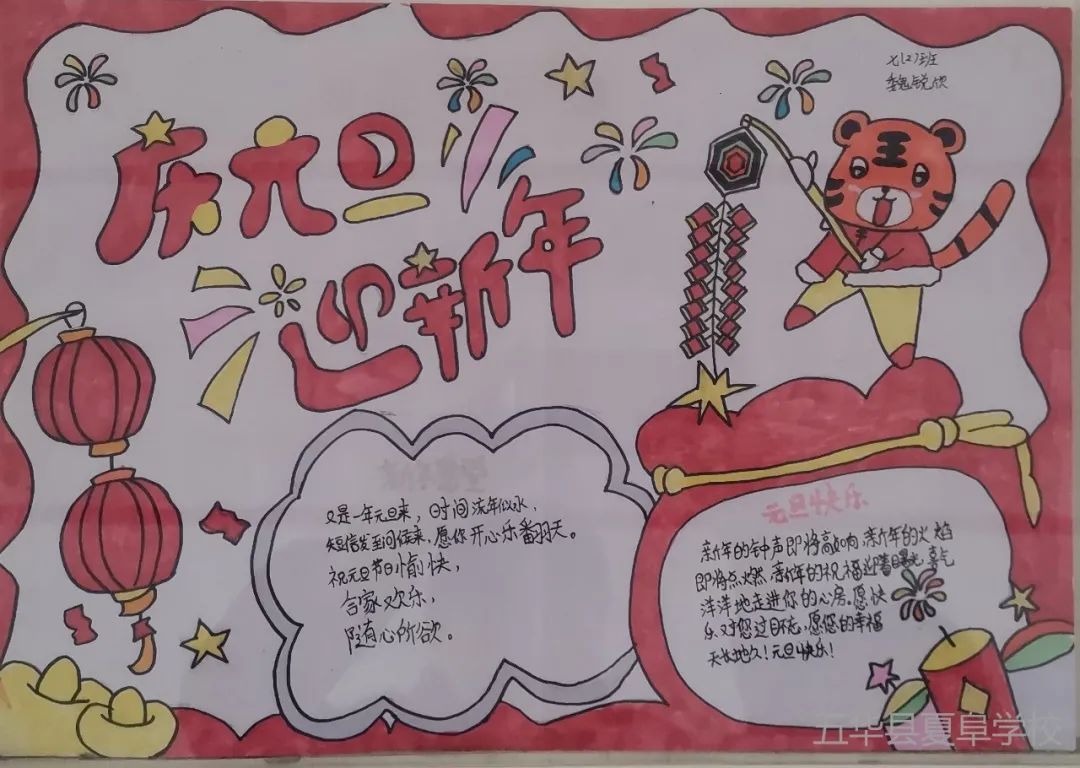 七(2)班
魏锐欣
庆元旦
迎新年
又是一年元旦来，时间流年似水，
短信发至问候来，愿你开心乐翻天。
祝元旦节日愉快，
合家欢乐，
随心所欲。
元旦快乐
新年的钟声即将敲响，新年的火焰
即将点燃，新年的祝福迎着曙光，喜气
洋洋地走进你的心房。愿快
乐对您过目不忘，愿您的幸福
天长地久！元旦快乐！
王
五华县夏阜学校